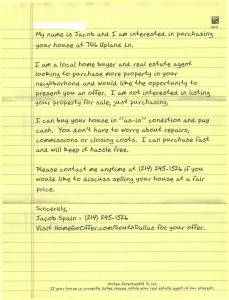 My name is Jacob and I am interested in purchasing
your house at 706 Upland Ln.
I am a local home buyer and real estate agent
looking to purchase more property in your
neighborhood and would like the opportunity to
present you an offer. I am not interested in listing
your property for sale, just purchasing.
I can buy your house in "as-is" condition and pay
cash. You don't have to worry about repairs,
commissions or closing costs. I can purchase fast
and will keep it hassle free.
Please contact me anytime at (214) 245-1526 if you
would like to discuss selling your house at a fair
price.
Sincerely,
Jacob Spain - (214) 245-1526
Visit HomeGoOffer.com/SouthDallas for your offer.
If your house is currently listed please notify your real estate agent of my interest.